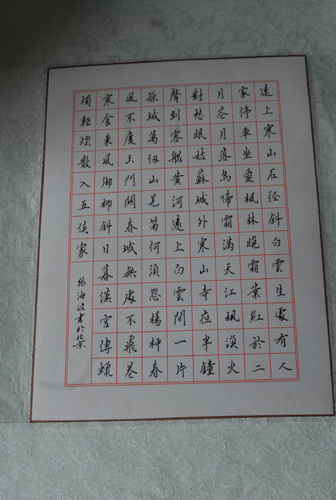 遠上寒山石径斜白雲生處有人
家停車坐愛楓林晚霜葉紅於二
月花月落烏啼霜滿天江楓漁火
對愁眠姑蘇城外寒山寺夜半鐘
聲到客船黃河遠上白雲間一片
孤城萬仞山羌笛何須怨楊柳春
風不度玉門關春城無處不飛花
寒食東風御柳斜日暮漢宮傳蠟
燭輕煙散入五侯家
張海波書於北京